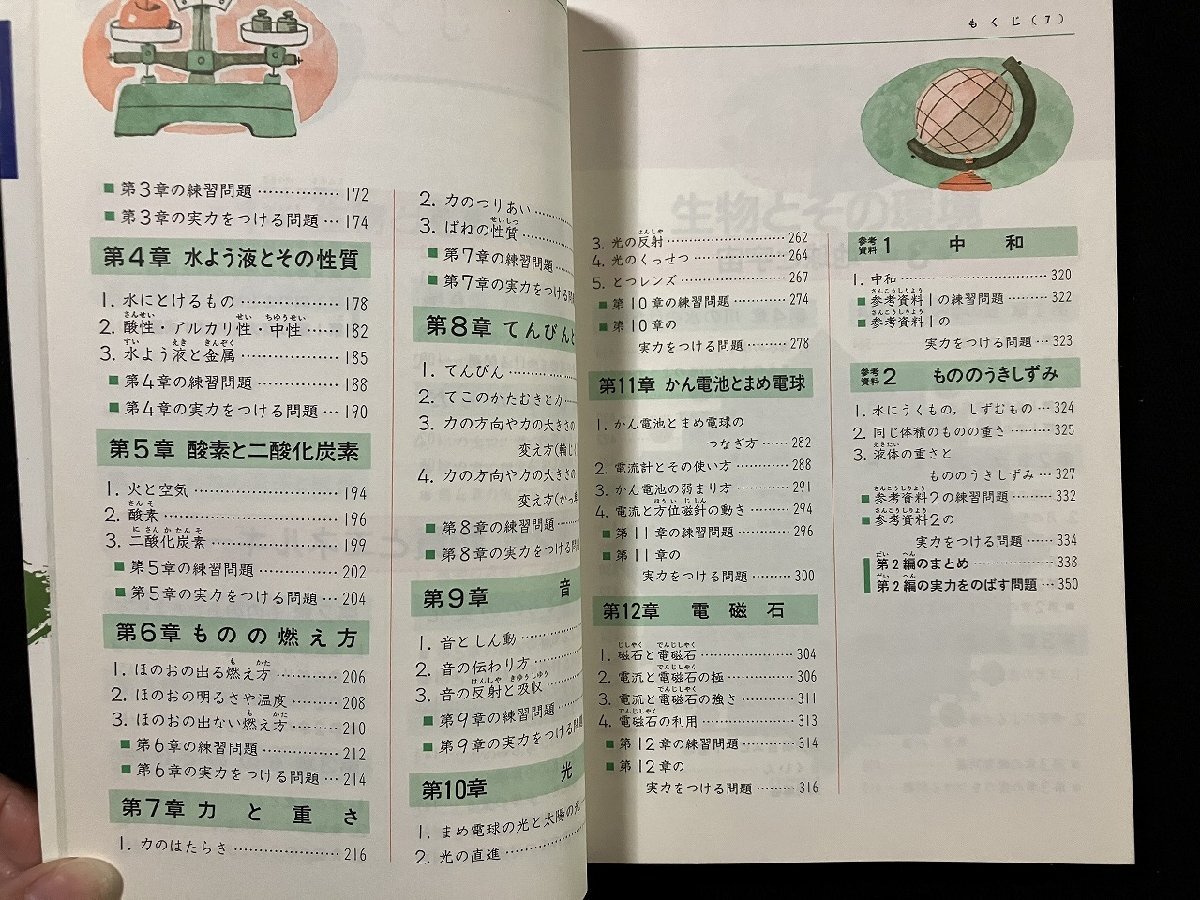 ■第3章の練習問題……………172
■第3章の実力をつける問題…174
第4章 水よう液とその性質
1. 水にとけるもの……………178
2. 酸性・アルカリ性・中性……182
3. 水よう液と金属……………185
■第4章の練習問題……………188
■第4章の実力をつける問題…190
第5章 酸素と二酸化炭素
1. 火と空気……………194
2. 酸素……………196
3. 二酸化炭素……………199
■第5章の練習問題……………202
■第5章の実力をつける問題…204
第6章 ものの燃え方
1. ほのおの出る燃え方…………206
2. ほのおの明るさや温度………208
3. ほのおの出ない燃え方………210
■第6章の練習問題……………212
■第6章の実力をつける問題…214
第7章 力と重さ
1. 力のはたらき……………216
2. 力のつりあい……………
3. ばねの性質……………
■第7章の練習問題
■第7章の実力をつける問
第8章 てんびんと
1. てんびん……………
2. てこのかたむきと力……
3. 力の方向や力の大きさの
変え方(輪じく
4. 力の方向や力の大きさの
変え方(かっ
■第8章の練習問題………
■第8章の実力をつける問
第9章 音
1. 音としん動……………
2. 音の伝わり方……………
3. 音の反射と吸収…………
■第9章の練習問題………
■第9章の実力をつける問題
第10章 光
1. まめ電球の光と太陽の光
2. 光の直進……………
もくじ(7)
3. 光の反射……………262
4. 光のくっせつ……………264
5. とつレンズ……………267
■第10章の練習問題………274
■第10章の
実力をつける問題………278
第11章 かん電池とまめ電球
1. かん電池とまめ電球の
つなぎ方……282
2. 電流計とその使い方………288
3. かん電池の弱まり方………291
4. 電流と方位磁針の動き……294
■第11章の練習問題………296
■第11章の
実力をつける問題………300
第12章 電磁石
1. 磁石と電磁石……………304
2. 電流と電磁石の極…………306
3. 電流と電磁石の強さ………311
4. 電磁石の利用……………313
■第12章の練習問題………314
■第12章の
実力をつける問題………316
参考資料1 中和
1. 中和……………320
■参考資料1の練習問題……322
■参考資料1の
実力をつける問題…323
参考資料2 もののうきしずみ
1. 水にうくもの, しずむもの…324
2. 同じ体積のものの重さ……325
3. 液体の重さと
もののうきしずみ…327
■参考資料2の練習問題……332
■参考資料2の
実力をつける問題……334
第2編のまとめ……………338
第2編の実力をのばす問題…350